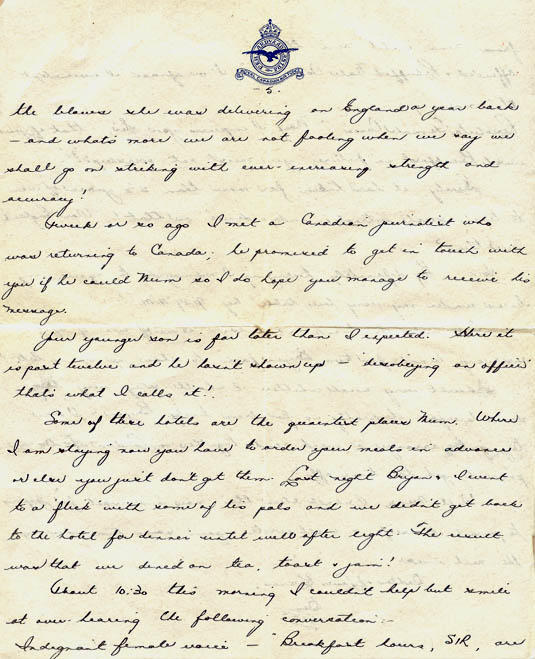 ROYAL CANADIAN AIR FORCE
- 5. -
the blows she was delivering on England a year back
- and what's more we are not fooling when we say we
shall go on striking with ever-increasing strength and
accuracy!
A week or so ago I met a Canadian journalist who
was returning to Canada; he promised to get in touch with
you if he could Mum so I do hope you manage to receive his
message.
Your younger son is far later than I expected. Here it
is past twelve and he hasn't shown up - disobeying an officer
that's what I calls it!
Some of these hotels are the quaintest places Mum. Where
I am staying now you have to order your meals in advance
or else you just don't get them. Last night Bryan & I went
to a flick with some of his pals and we didn't get back
to the hotel for dinner until well after eight. The result
was that we dined on tea, toast & jam!
About 10:30 this morning I couldn't help but smile
at over-hearing the following conversation:-
Indignant female voice - "Breakfast hours, SIR, are